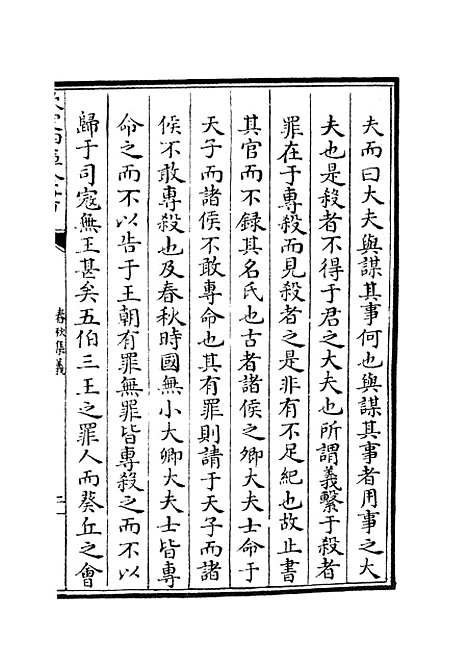 夫而曰大夫與謀其事何也與謀其事者用事之大
夫也是殺者不得于君之大夫也所謂義繫于殺者
罪在于專殺而見殺者之是非有不足紀也故止書
其官而不録其名氏也古者諸侯之卿大夫士命于
天子而諸侯不敢專命也其有罪則請于天子而諸
侯不敢專殺也及春秋時國無小大卿大夫士皆專
命之而不以告于王朝有罪無罪皆專殺之而不以
歸于司寇無王甚矣五伯三王之罪人而葵丘之會
春秋集義